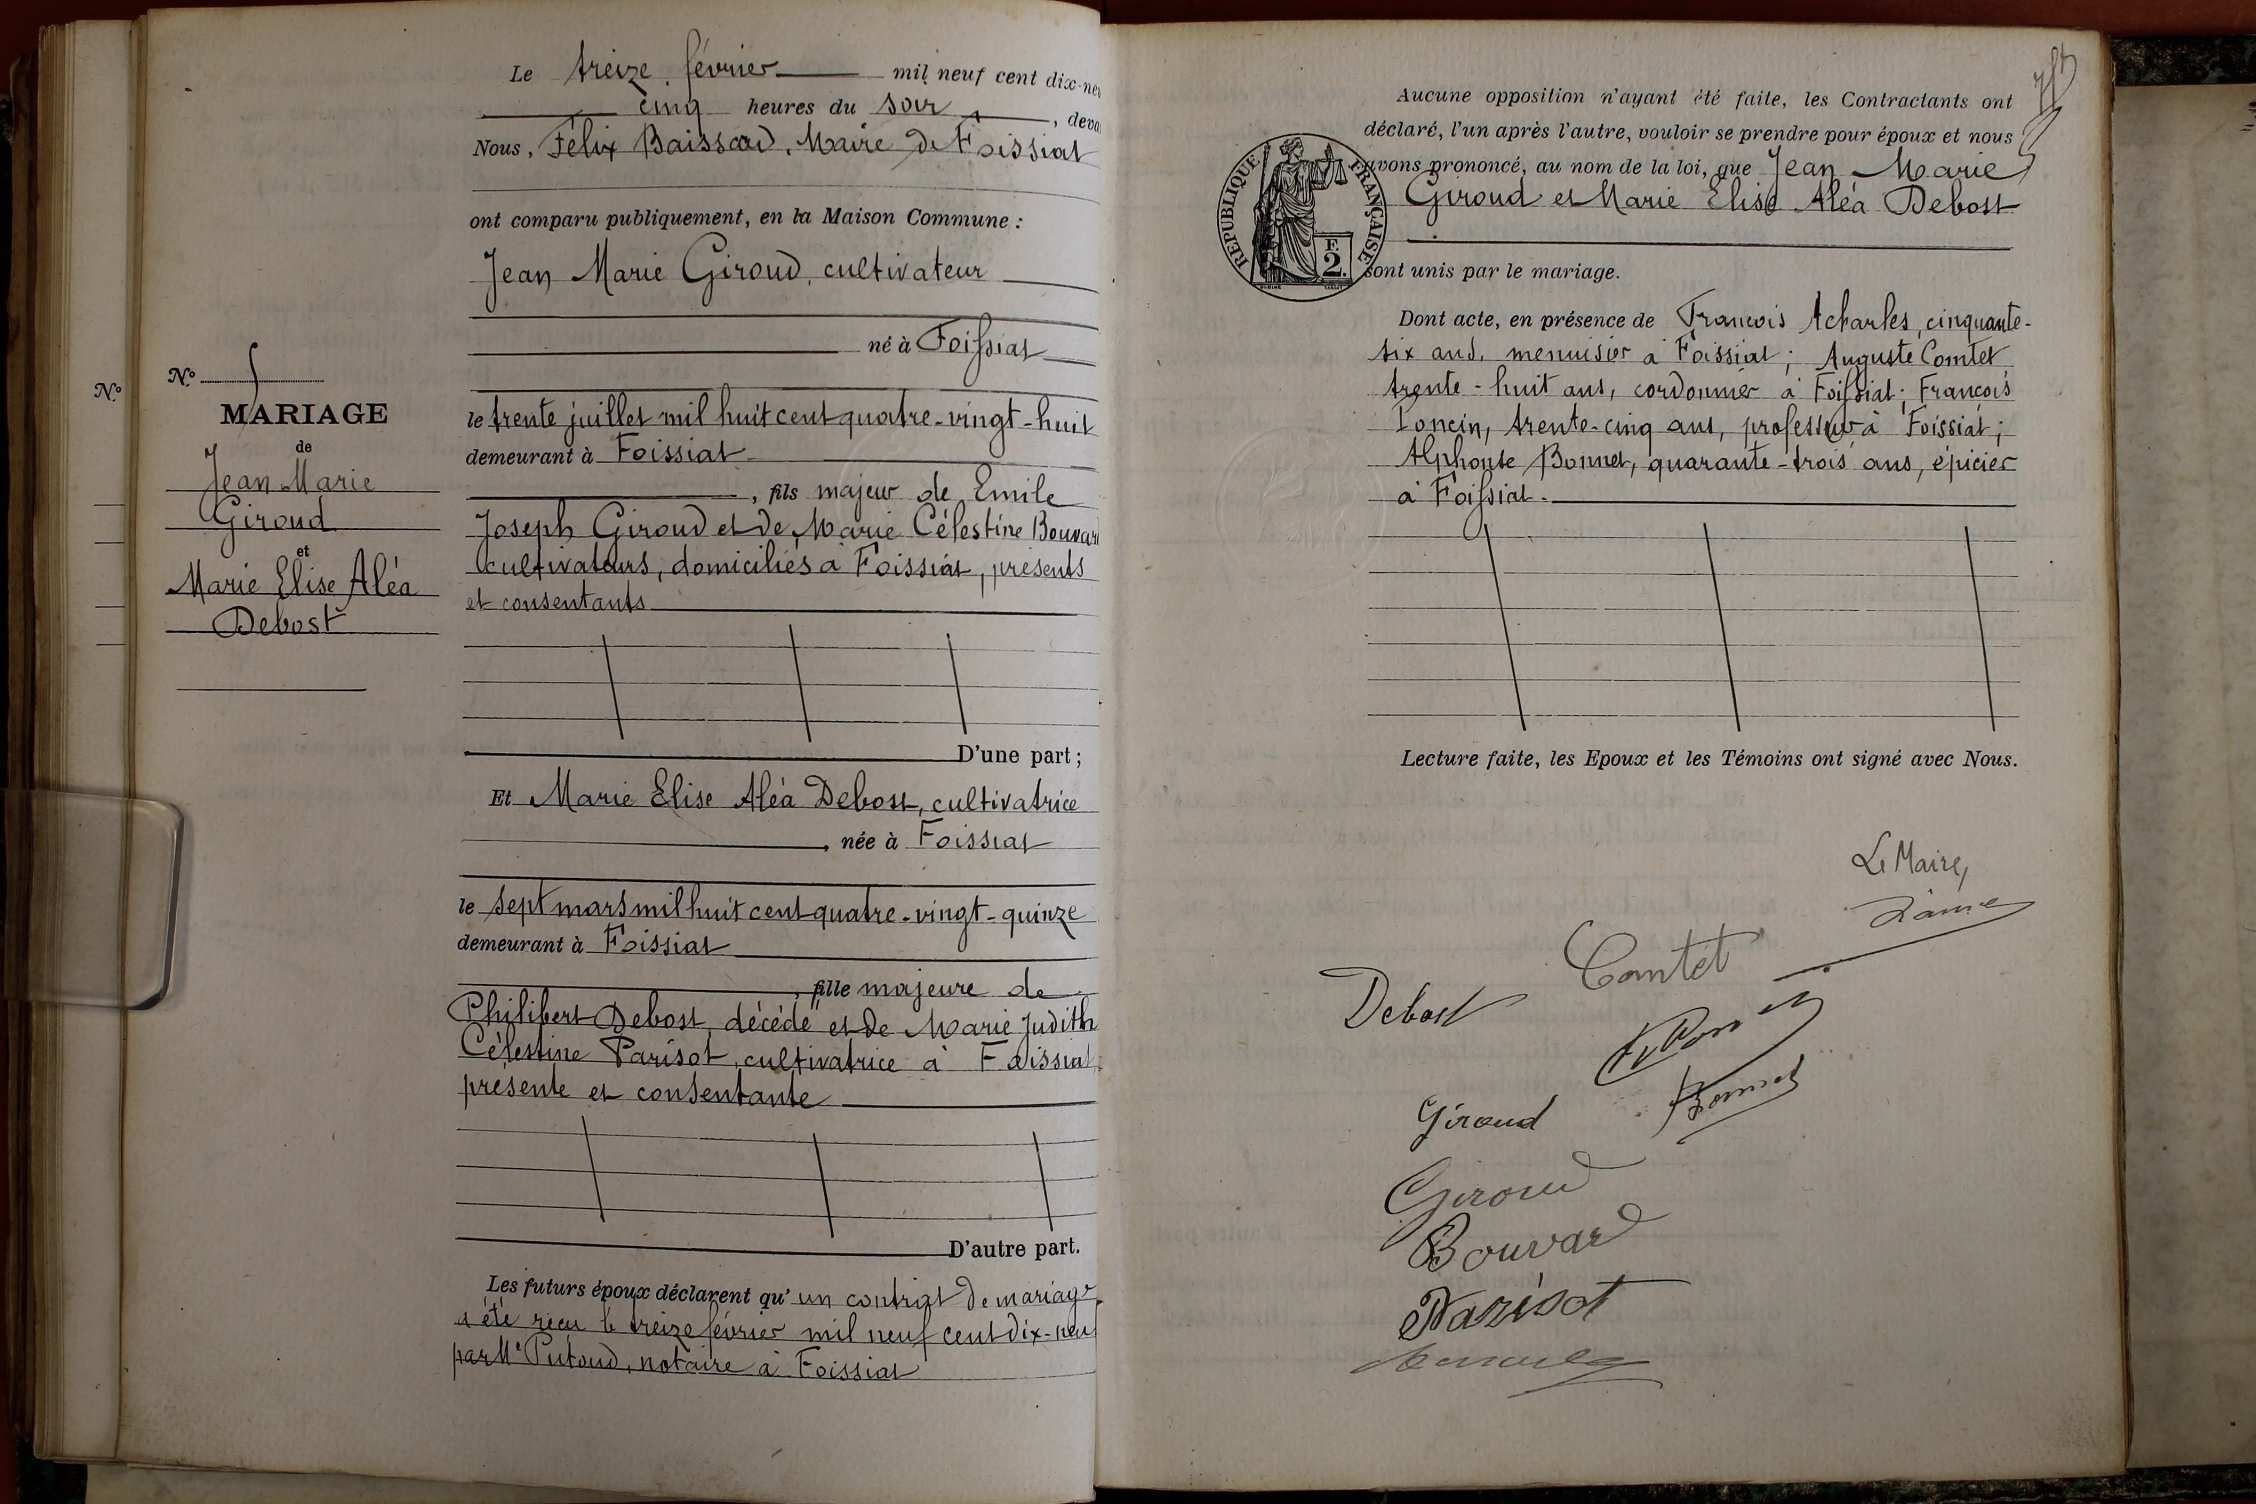 Le treize février mil neuf cent dix-neu
cinq heures du soir, deva
Nous, Félix Baissard, Maire de Foissiat
ont comparu publiquement, en la Maison Commune :
Jean Marie Giroud, cultivateur
né à Foissiat
le trente juillet mil huit cent quatre-vingt-huit
demeurant à Foissiat
, fils majeur de Emile
Joseph Giroud et de Marie Célestine Bouvard
cultivateurs, domiciliés à Foissiat, présents
et consentants
D'une part ;
Et Marie Elise Aléa Debost, cultivatrice
, née à Foissiat
le sept mars mil huit cent quatre-vingt-quinze
demeurant à Foissiat
, fille majeure de
Philibert Debost, décédé et de Marie Judith
Célestine Parisot, cultivatrice à Foissiat,
présente et consentante
D'autre part.
Les futurs époux déclarent qu'un contrat de mariage
a été reçu le treize février mil neuf cent dix-neuf
par Me Putoud, notaire à Foissiat
No
No
MARIAGE
de
Jean Marie
Giroud
et
Marie Elise Aléa
Debost
Aucune opposition n'ayant été faite, les Contractants ont
déclaré, l'un après l'autre, vouloir se prendre pour époux et nous
avons prononcé, au nom de la loi, que Jean Marie
Giroud et Marie Elise Aléa Debost
sont unis par le mariage.
RÉPUBLIQUE FRANÇAISE
F.
2.
Dont acte, en présence de François Acharles, cinquante-
six ans, menuisier à Foissiat ; Auguste Comtet
trente-huit ans, cordonnier à Foissiat ; François
Poncin, trente-cinq ans, professeur à Foissiat ;
Alphonse Bonnet, quarante-trois ans, épicier
à Foissiat.
Lecture faite, les Epoux et les Témoins ont signé avec Nous.
Le Maire,
Comtet
Debost
Bonnet
Giroud
Giroud
Bouvard
Parisot